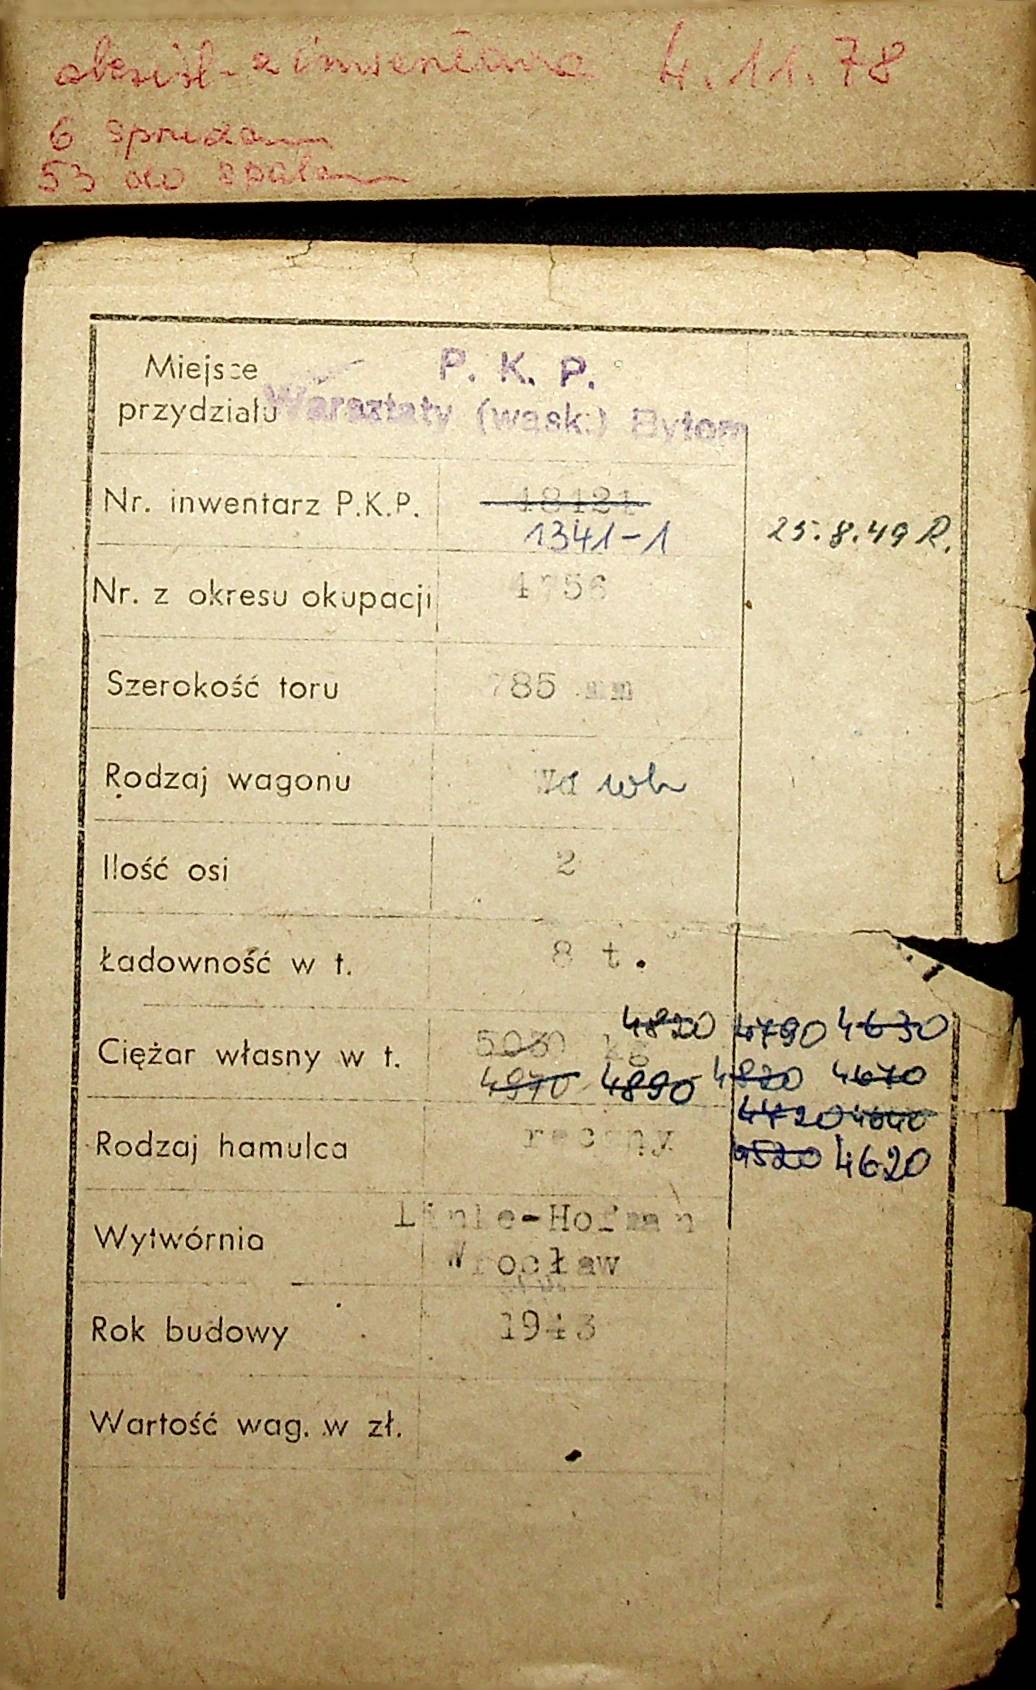 z inwentarza 4.11.78
6 sprzedano
53 do spalen
Miejsce
przydziału
P. K. P.
Warsztaty (wąsk.) Bytom
Nr. inwentarz P.K.P.
18121
1341-1
25.8.49 R.
Nr. z okresu okupacji
4756
Szerokość toru
785 mm
Rodzaj wagonu
Wd wh
Ilość osi
2
Ładowność w t.
8 t.
Ciężar własny w t.
5030 kg 4820 4790 4630
4970 4890 4820 4670
4720 4640
4520 4620
Rodzaj hamulca
ręczny
Wytwórnia
Linle-Hofman
Wrocław
Rok budowy
1943
Wartość wag. w zł.